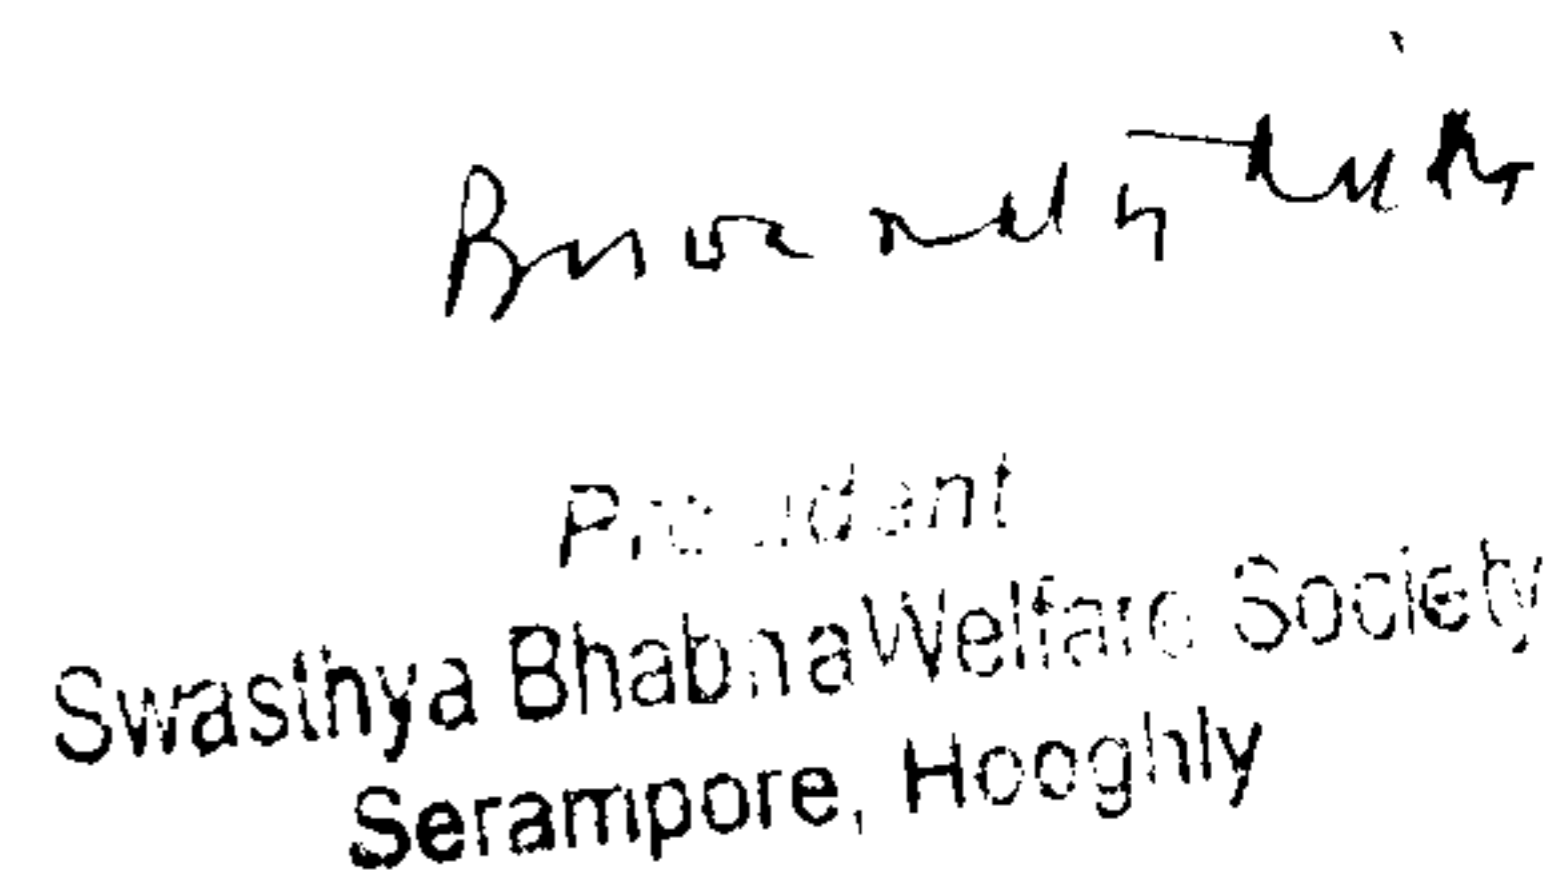 President
Swasthya Bhabna Welfare Society
Serampore, Hooghly